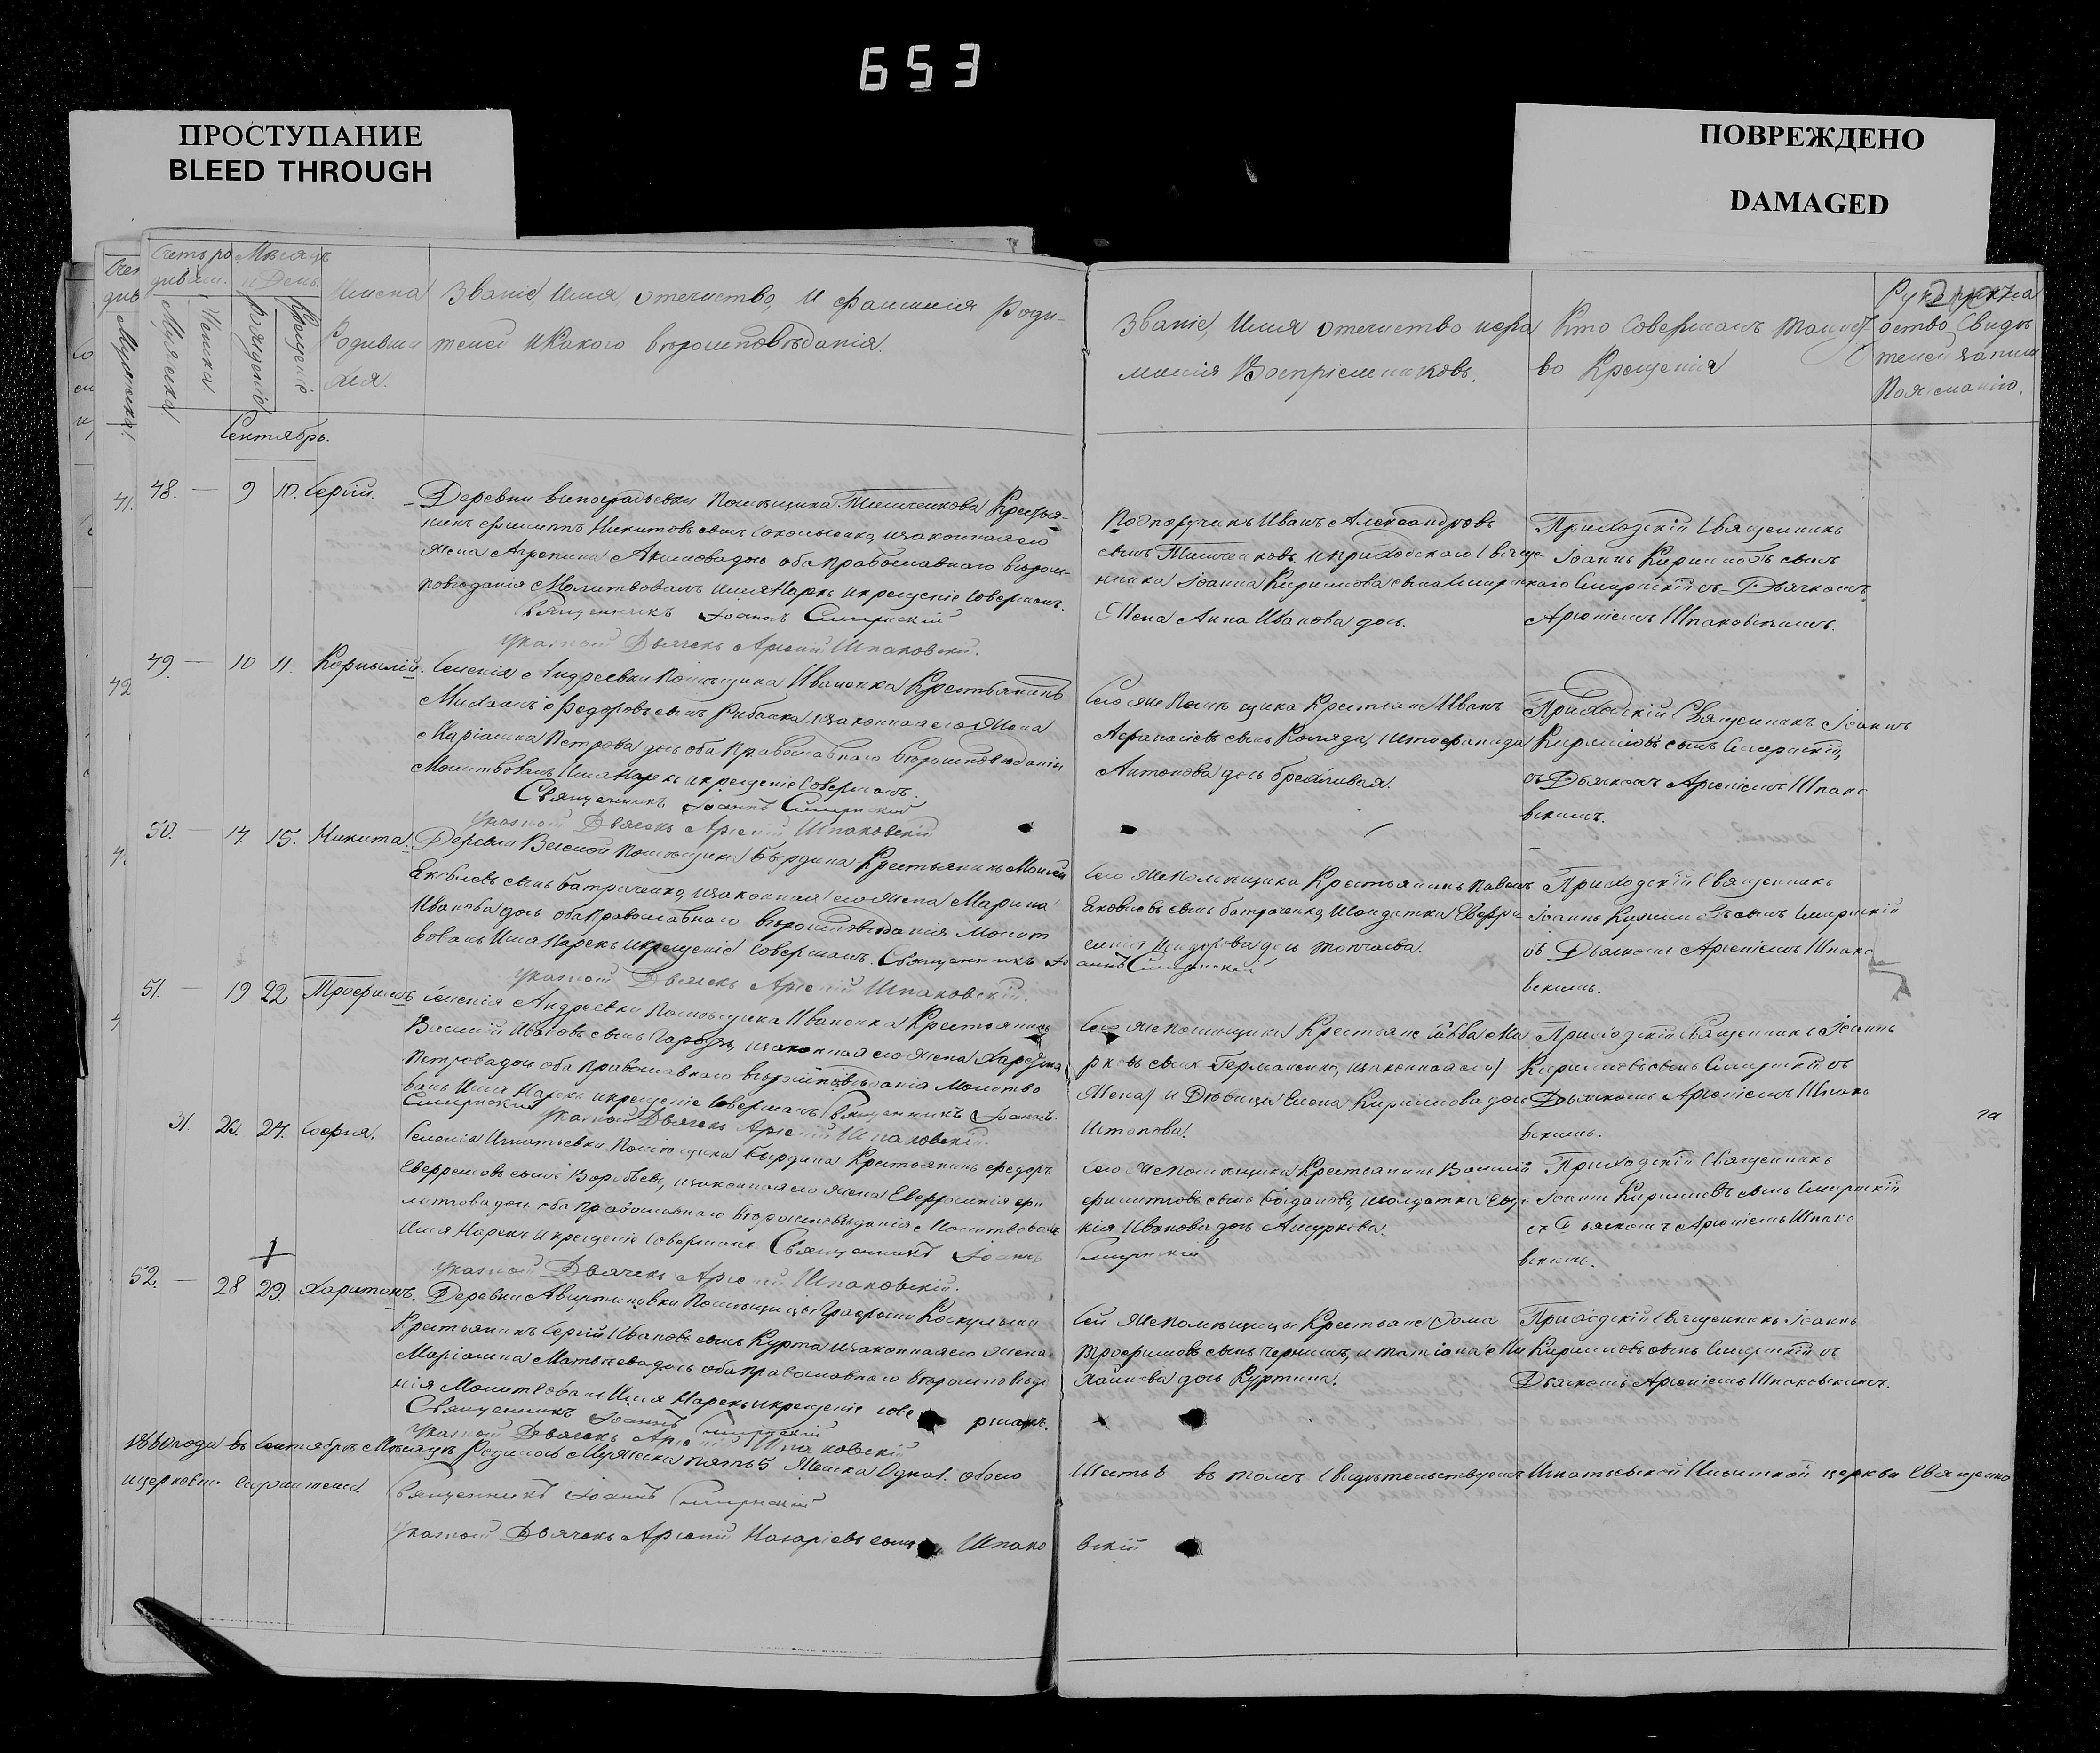 653
ПРОСТУПАНИЕ
BLEED THROUGH
ПОВРЕЖДЕНО
DAMAGED
Счетъ родивш.
Мужеска
Женска.
Мѣсяцъ и День.
Рожденіе
Крещеніе
Имена Родившихся.
Званіе, Имя, отечество, и фамилія Роди-
телей и Какого вѣроисповѣданія.
Званіе, Имя отечество и фа
милія Воспріемниковъ.
Кто Совершалъ Таинст
во Крещенія
Рукоприкла
дство Свидѣ
телей записи
По желанію.
Сентябрь.
48. — 9 10. Сергій.
Помѣщика Тимченкова Крестья-
нинъ Филиппъ Никитовъ сынъ изаконная его
Жена Агрепина Акимова дочь оба православнаго вѣроис-
повѣданія Молитвовалъ имя Нарекъ и крещеніе Совершалъ.
Священникъ Іоаннъ Смирнскій
Указной Дьячекъ Арсеній Шпаковскій.
Подпоручикъ Иванъ Александровъ
сынъ Тимченковъ, и приходскаго Свяще
нника Іоанна Кирилова сына Смирнскаго
Жена Анна Иванова дочь.
Приходскій Священникъ
Іоаннъ Кириловъ сынъ
Смирнскій съ Дьячкомъ
Арсеніемъ Шпаковскимъ.
49. — 10 11. Корнилій.
Селенія Андреевки Помѣщика Иваненка Крестьянинъ
Михаилъ Федоровъ сынъ Рибалка, изаконная его Жена
Маріамна Петрова дочь оба Православнаго вѣроисповѣданія
Молитвовалъ Имя Нарекъ и крещеніе Совершалъ.
Священникъ Іоаннъ Смирнскій
Указной Дьячекъ Арсеній Шпаковскій
Того же Помѣщика Крестьяне Иванъ
Афанасіевъ сынъ Коляда,
Антонова дочь
Приходскій Священникъ Іоаннъ
Кириловъ сынъ Смирнскій,
съ Дьячкомъ Арсеніемъ Шпако
вскимъ.
50. — 14. 15. Никита.
Деревни Веселой Помѣщика Бырдина Крестьянинъ Моисей
Яковлевъ сынъ Батраченко, изаконная его Жена Марина
Иванова дочь оба Православнаго вѣроисповѣданія Молит
вовалъ Имя Нарекъ и крещеніе Совершалъ. Священникъ Іо
аннъ Смирнскій
Указной Дьячекъ Арсеній Шпаковскій.
Того же Помѣщика Крестьянинъ Павелъ
Яковлевъ сынъ Батраченко, и солдатка Евфро
синія дочь Топчіева.
Приходскій Священникъ
Іоаннъ Кириловъ сынъ Смирнскій
съ Дьячкомъ Арсеніемъ Шпако
вскимъ.
51. — 19 22. Трофимъ
Селенія Андреевки Помѣщика Иваненка Крестьянинъ
Василій Ивановъ сынъ изаконная его Жена
Петрова дочь оба Православнаго вѣроисповѣданія Молитво
валъ Имя Нарекъ и крещеніе Совершалъ Священникъ Іоаннъ
Смирнскій
Указной Дьячекъ Арсеній Шпаковскій.
Того же Помѣщика Крестьяне Савва Ма
рковъ сынъ Германенко, изаконная его
Жена и Дѣвица Елена Кирилова дочь
Приходскій Священникъ Іоаннъ
Кириловъ сынъ Смирнскій съ
Дьячкомъ Арсеніемъ Шпако
вскимъ.
31. 23. 24. Софія.
Селенія Игнатьевки Помѣщика Бырдина Крестьянинъ Федоръ
Евфремовъ сынъ Воробьевъ, изаконная его Жена Евфросинія Фи
липова дочь оба Православнаго вѣроисповѣданія Молитвовалъ
Имя Нарекъ и крещеніе Совершалъ. Священникъ Іоаннъ
Смирнскій
Указной Дьячекъ Арсеній Шпаковскій.
Того же Помѣщика Крестьянинъ Василій
Филиповъ сынъ Богдановъ, и солдатка Евдо
кія Иванова дочь
Приходскій Священникъ
Іоаннъ Кириловъ сынъ Смирнскій
съ Дьячкомъ Арсеніемъ Шпако
вскимъ.
52. — 28 29. Харитонъ.
Деревни Помѣщицы Графини
Крестьянинъ Сергій Ивановъ сынъ Курта изаконная его Жена
Маріамна Матвѣева дочь оба Православнаго вѣроисповѣда
нія Молитвовалъ Имя Нарекъ и крещеніе совершалъ.
Священникъ Іоаннъ Смирнскій
Указной Дьячекъ Арсеній Шпаковскій
Сей же Помѣщицы Крестьяне Фома
Трофимовъ сынъ и Татіана Ми
хайлова дочь Куртина.
Приходскій Священникъ Іоаннъ
Кириловъ сынъ Смирнскій съ
Дьячкомъ Арсеніемъ Шпаковскимъ.
1860 года въ Сентябрѣ Мѣсяцѣ Родилось Мужеска пять 5 Женска Одна 1. обоего Шесть 6 въ томъ Свидѣтельствуемъ церкви Священно
и церковно служители.
Священникъ Іоаннъ Смирнскій
Указной Дьячекъ Арсеній Назаріевъ сынъ Шпаковскій